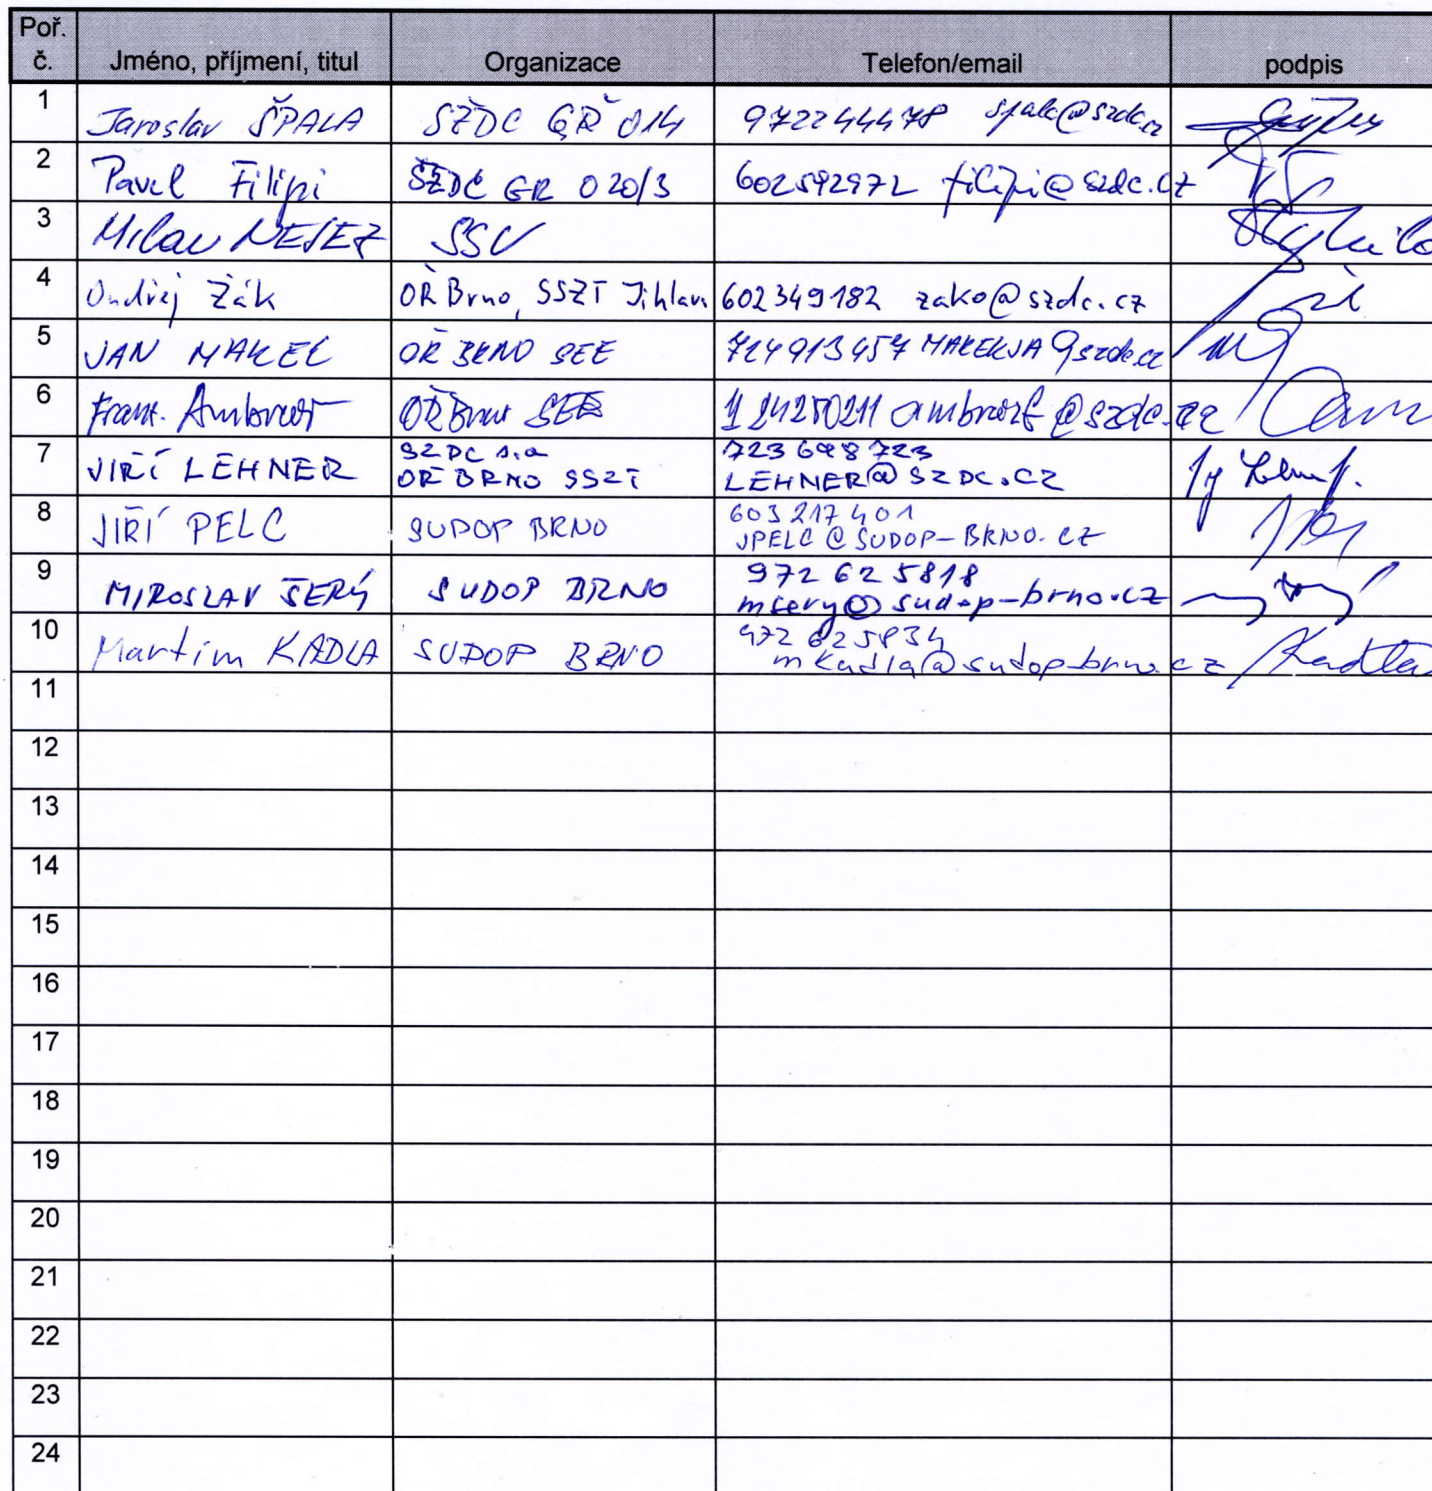 Poř. č. Jméno, příjmení, titul Organizace Telefon/email podpis
1 Jaroslav ŠPALA SŽDC GŘ O14 972244478 spala@szdc.cz
2 Pavel Filipi SŽDC GŘ O20/3 602592972 filipi@szdc.cz
3 Milan SSV
4 Ondřej Žák OŘ Brno, SSZT Jihlava 602349182 zako@szdc.cz
5 JAN OŘ BRNO SEE 724913457 szdc.cz
6 Frant. OŘ Brno SEE @szdc.cz
7 JIŘÍ LEHNER SŽDC s.o OŘ BRNO SSZT 723698723 LEHNER@SZDC.CZ
8 JIŘÍ PELC SUDOP BRNO 603217401 JPELC@SUDOP-BRNO.CZ
9 MIROSLAV ŠERÝ SUDOP BRNO 972625818 msery@sudop-brno.cz
10 Martin KADLA SUDOP BRNO 972625834 mkadla@sudop-brno.cz Kadla
11
12
13
14
15
16
17
18
19
20
21
22
23
24